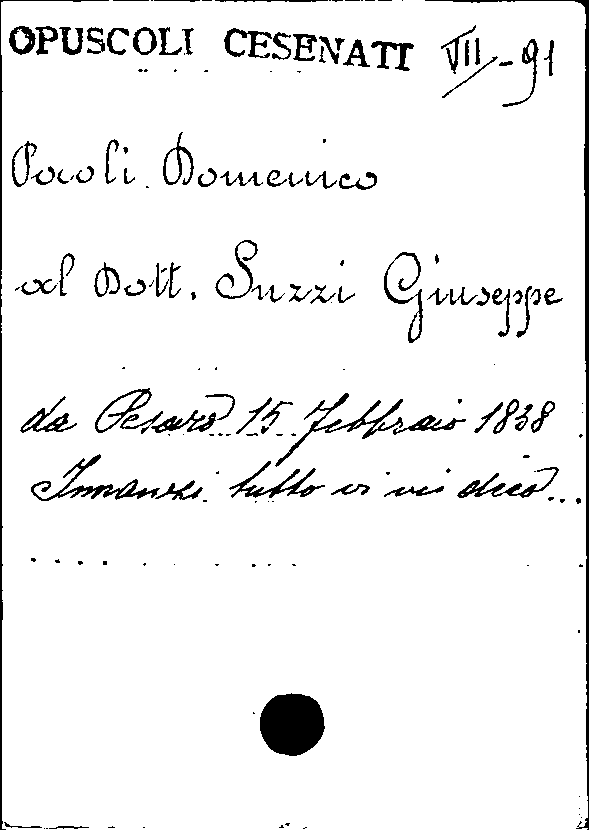 OPUSCOLI CESENATI VII-91
Paoli Domenico
al Dott. Suzzi Giuseppe
da Pesaro 15 Febbraio 1838
Innanzi tutto vi dico...